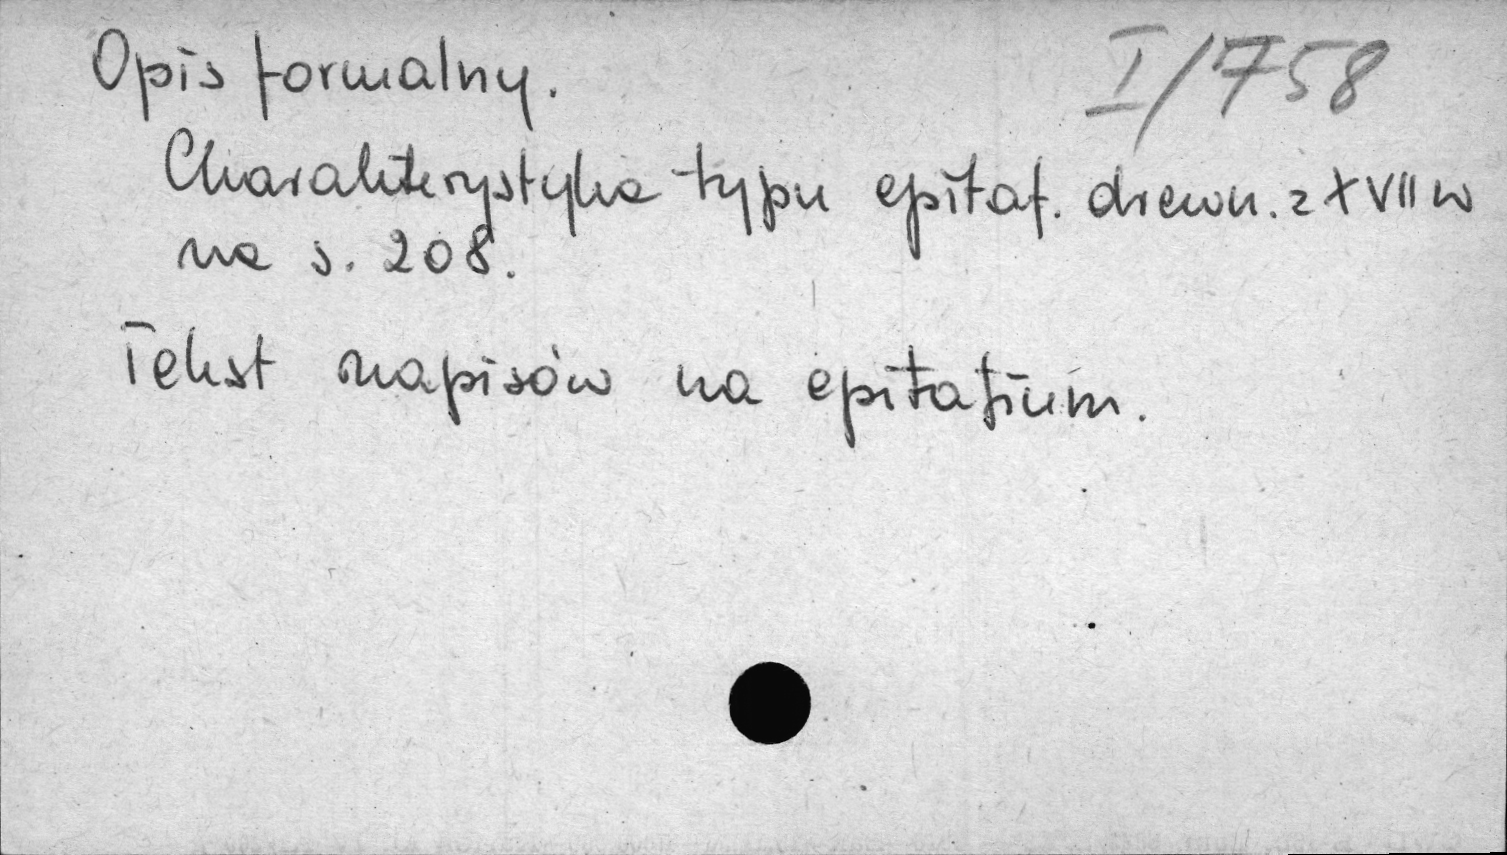 Opis formalny. I/758
Charakterystyka typu epitaf. drewn. z XVII w
na s. 208.
Tekst napisów na epitafium.